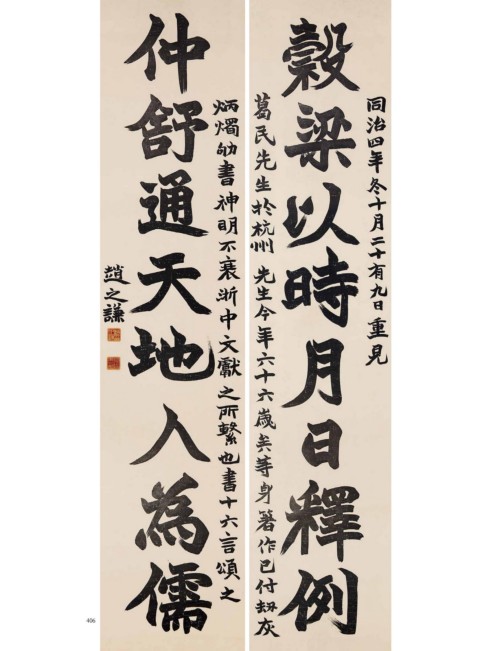 同治四年冬十月二十有九日重見
穀梁以時月日釋例
葛民先生於杭州 先生今年六十六歲矣等身箸作已付劫灰
炳燭劬書神明不衰浙中文獻之所繫也書十六言頌之
仲舒通天地人為儒
趙之謙
406